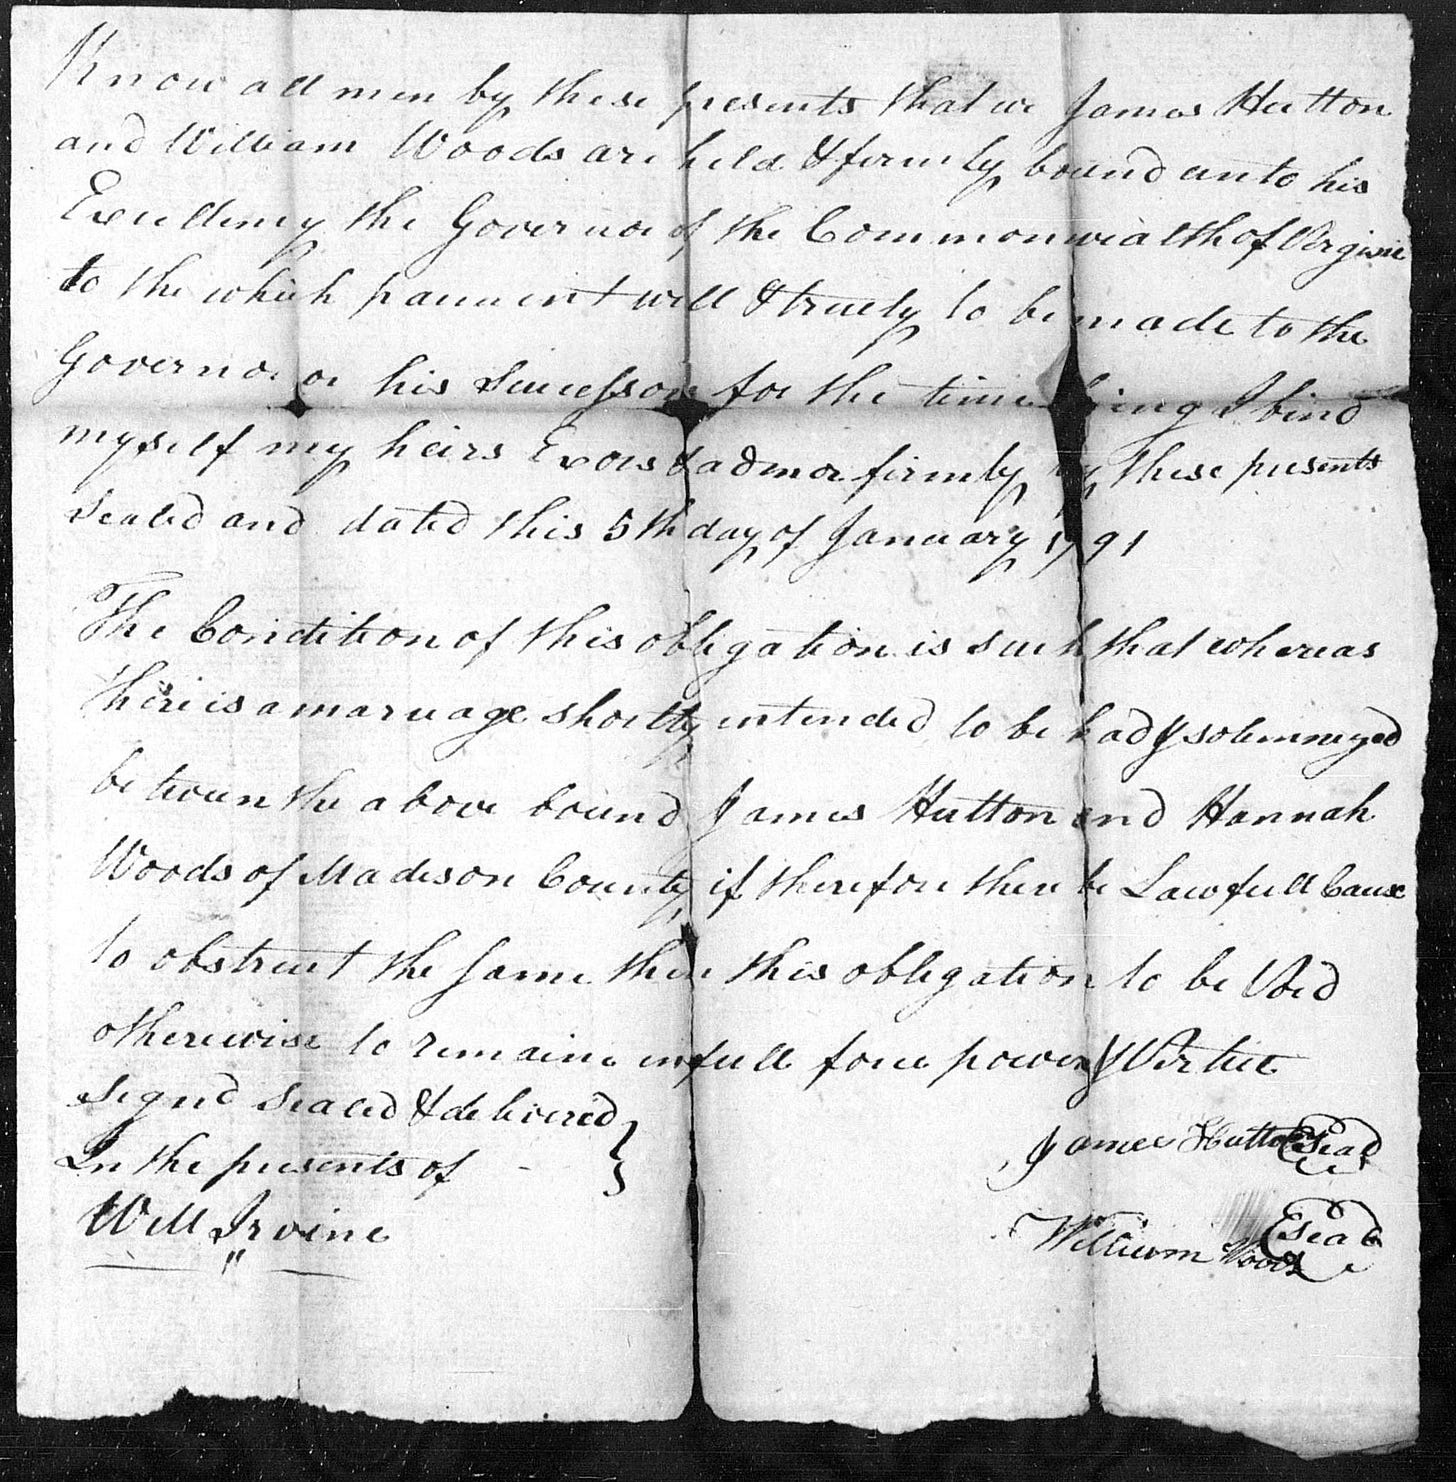 Know all men by these presents that we James Hutton
and William Woods are held & firmly bound unto his
Excellency the Governor of the Commonwealth of Virginia
to the which paument well & truely to be made to the
Governor or his Successors for the time being I bind
myself my heirs Exors & admor firmly by these presents
Sealed and dated this 5th day of January 1791
The Condition of this obligation is such that whereas
there is a marriage shortly intended to be had & solemnized
between the above bound James Hutton and Hannah
Woods of Madison County if therefore there be Lawfull Cause
to obstruct the same then this obligation to be Void
otherewise to remaine in full force power & Virtue
Signd Sealed & delivered
In the presents of
Will Irvine
James Hutton Seal
William Woods Seal